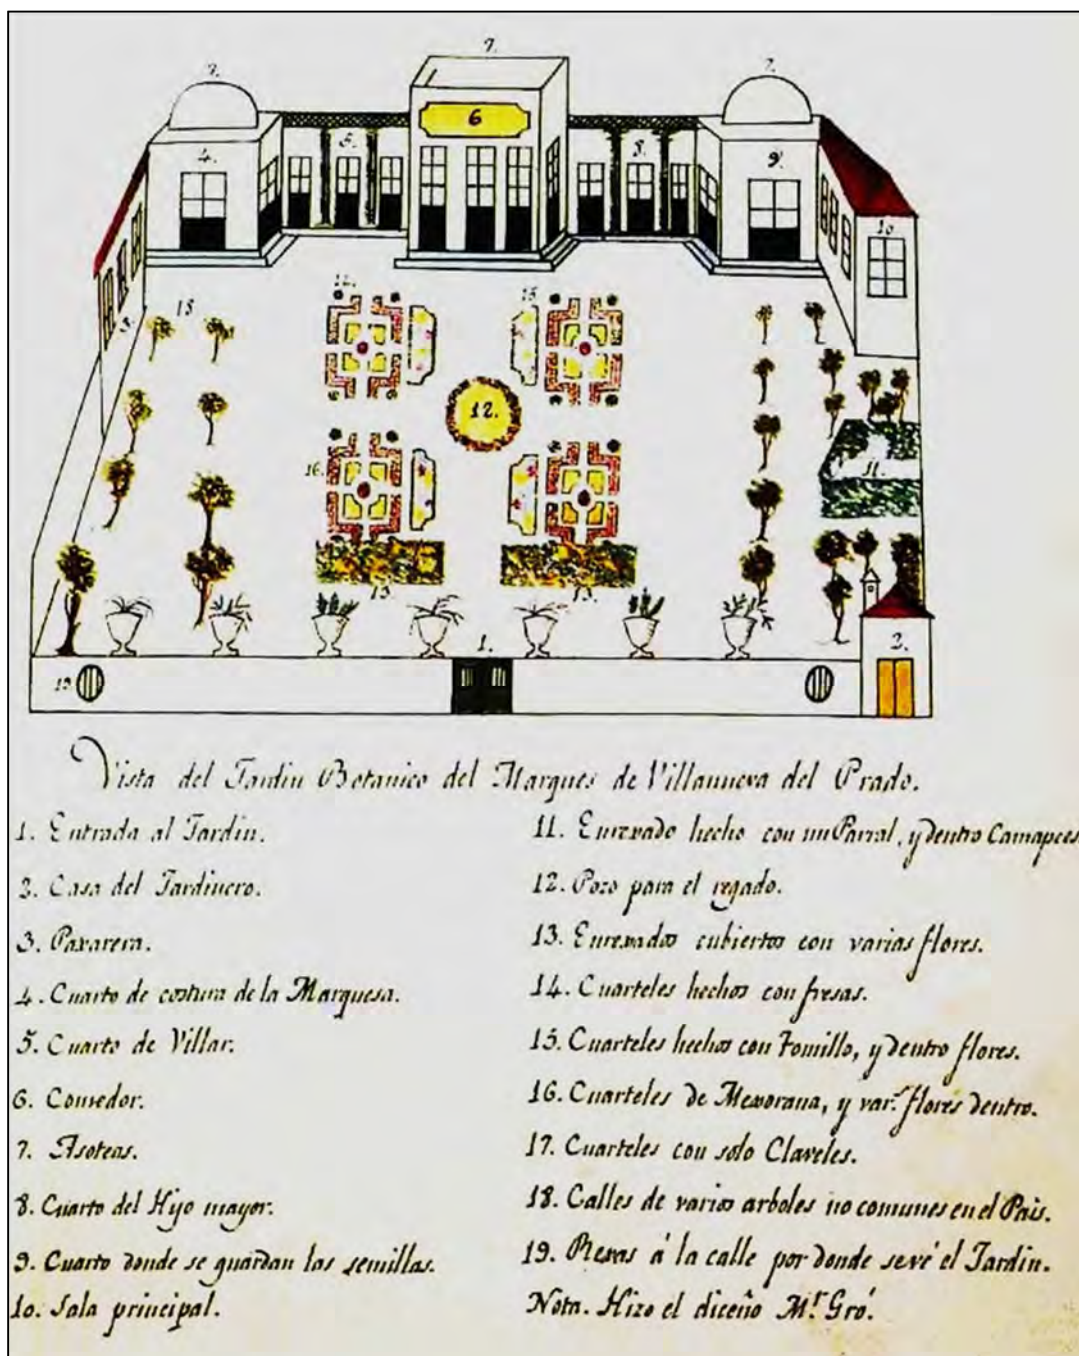 7.
7.
7.
6
5.
8.
4.
9.
10
3.
18
14.
15.
12.
16.
11.
13.
13.
1.
2.
19
Vista del Jardin Botanico del Marques de Villanueva del Prado.
1. Entrada al Jardin.
2. Casa del Jardinero.
3. Paxarera.
4. Cuarto de costura de la Marquesa.
5. Cuarto de Villar.
6. Comedor.
7. Asoteas.
8. Cuarto del Hijo mayor.
9. Cuarto donde se guardan las semillas.
10. Sala principal.
11. Enrexado hecho con un Parral, y dentro Camapees.
12. Pozo para el regado.
13. Enrexados cubiertos con varias flores.
14. Cuarteles hechos con fresas.
15. Cuarteles hechos con Tomillo, y dentro flores.
16. Cuarteles de Mexorana, y var.s flores dentro.
17. Cuarteles con solo Claveles.
18. Calles de varios arboles no comunes en el Pais.
19. Rexas á la calle por donde se vé el Jardin.
Nota. Hizo el diceño M.r Gró.